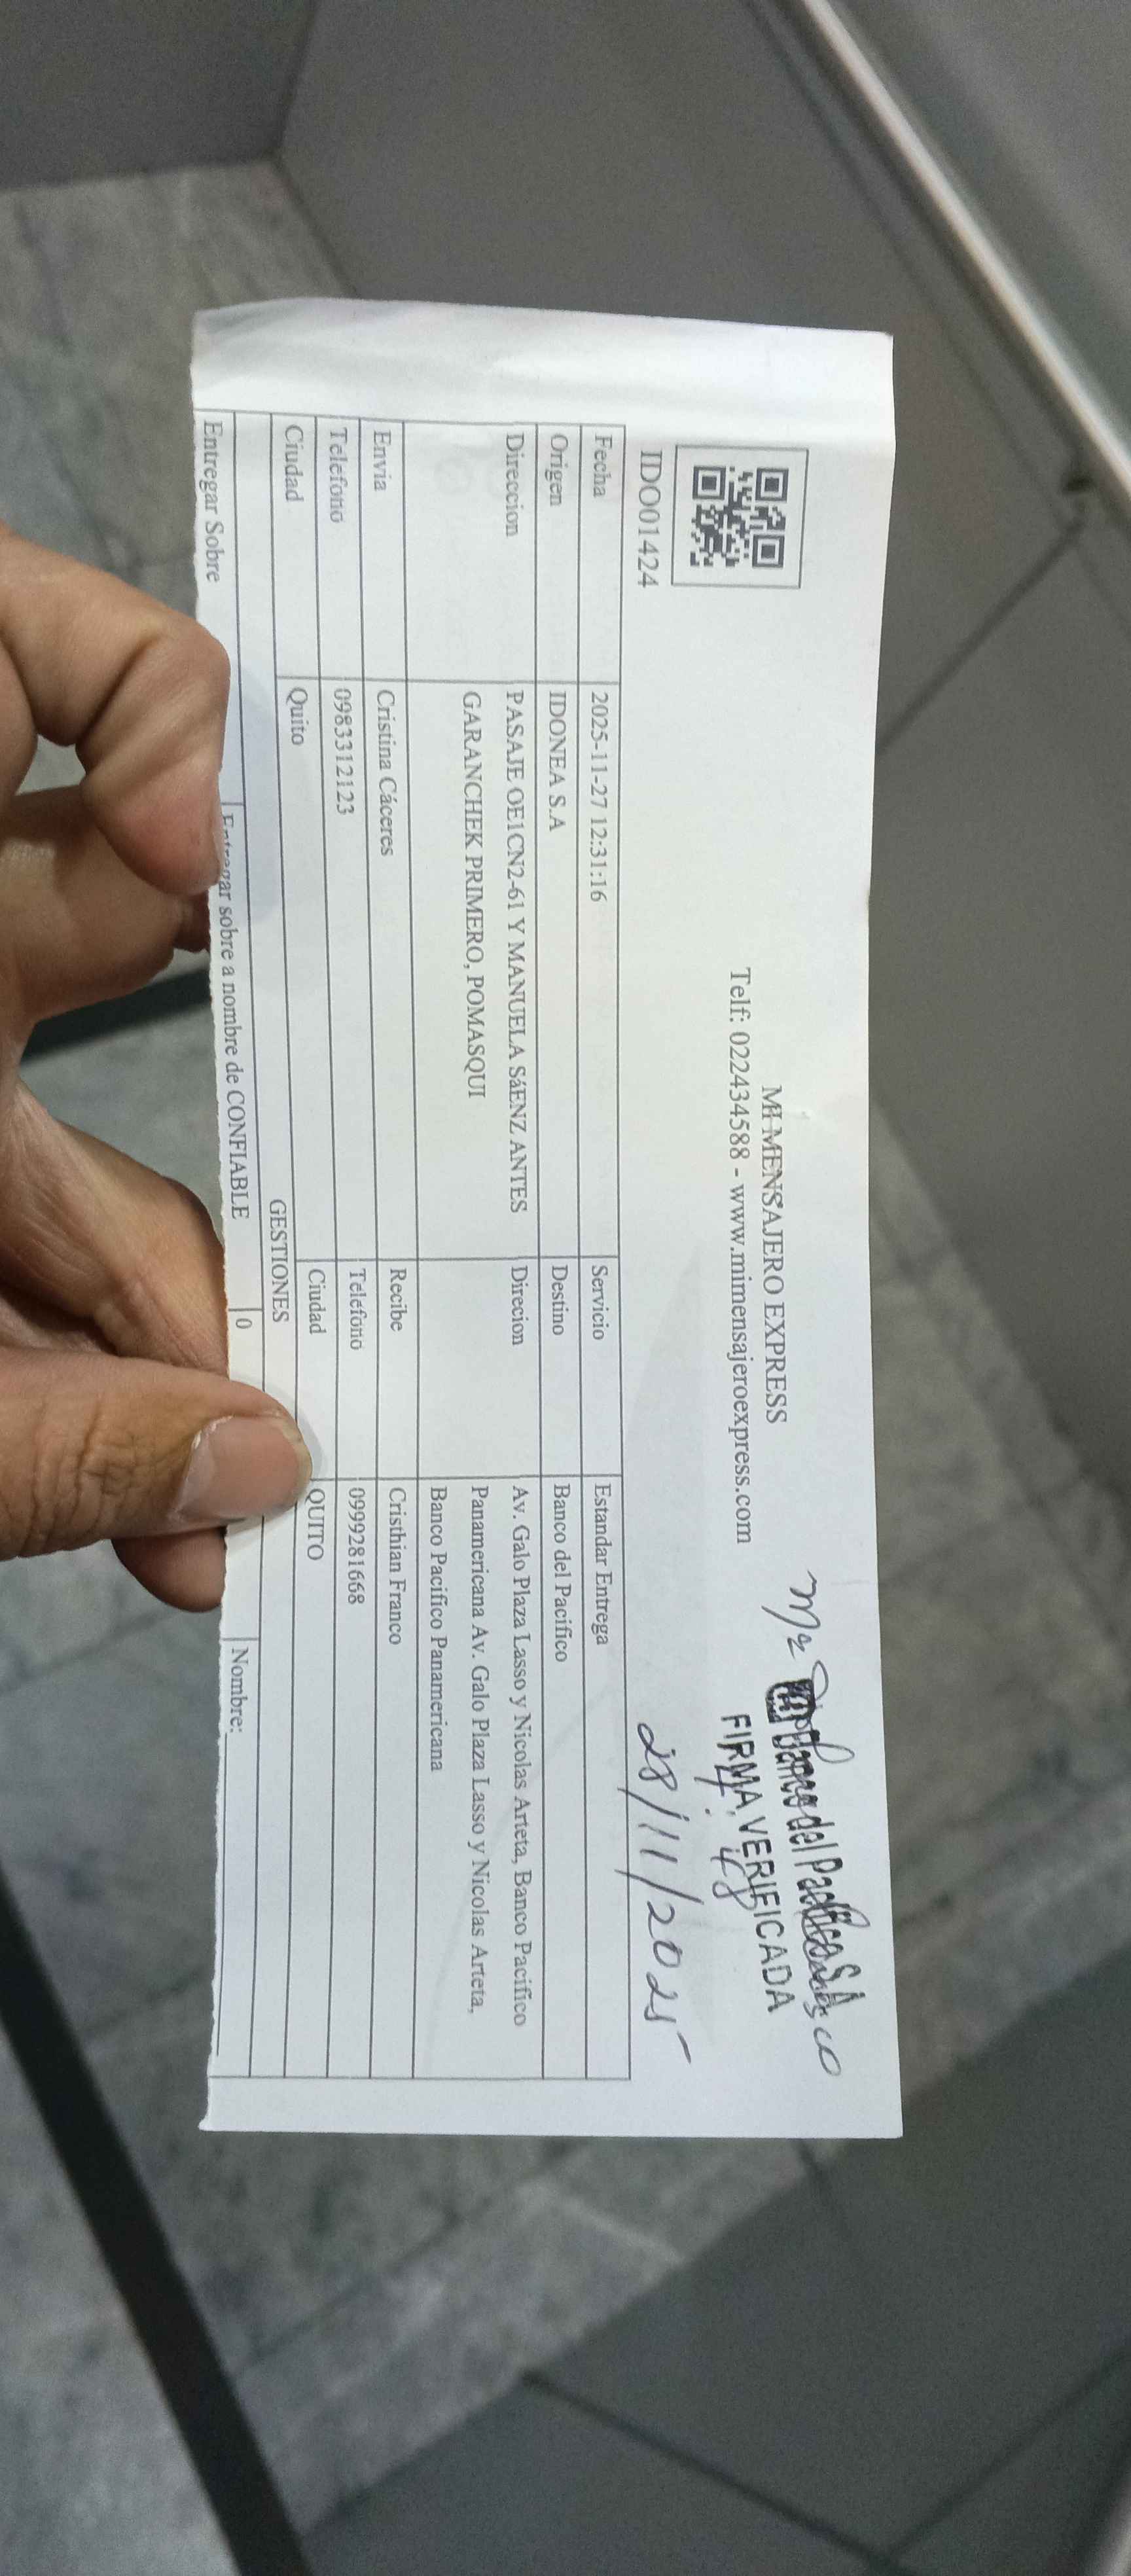 MI MENSAJERO EXPRESS
Telf: 022434588 - www.mimensajeroexpress.com
Banco del Pacífico S.A.
FIRMA VERIFICADA
28/11/2025
IDO01424
Fecha 2025-11-27 12:31:16 Servicio Estandar Entrega
Origen IDONEA S.A Destino Banco del Pacifico
Direccion PASAJE OE1CN2-61 Y MANUELA SáENZ ANTES Direcion Av. Galo Plaza Lasso y Nicolas Arteta, Banco Pacifico
GARANCHEK PRIMERO, POMASQUI Panamericana Av. Galo Plaza Lasso y Nicolas Arteta,
Banco Pacifico Panamericana
Envia Cristina Cáceres Recibe Cristhian Franco
Telefono 0983312123 Telefono 0999281668
Ciudad Quito Ciudad QUITO
GESTIONES
Entregar Sobre Entregar sobre a nombre de CONFIABLE 0 Nombre: